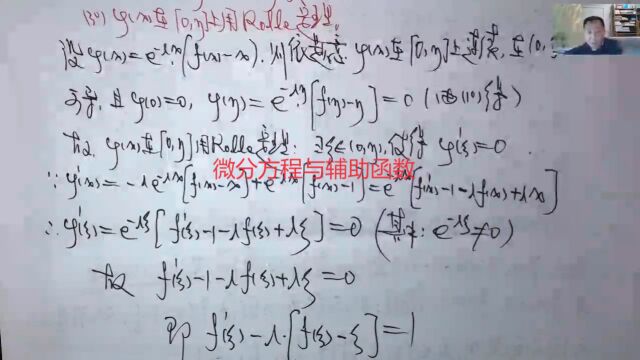 对φ(x)在[0,η]上用Rolle定理。
设φ(x)=e^{-λx}[f(x)-x],则依题意 φ(x)在[0,η]上连续,在(0,
可导,且φ(0)=0, φ(η)=e^{-λη}[f(η)-η]=0(
故 φ(x)在[0,η]用Rolle定理:∃ξ∈(0,η),使得 φ'(ξ)=0
微分方程与辅助函数
∵φ'(x)=-λe^{-λx}[f(x)-x]+e^{-λx}[f'(x)-1]=e^{-λx}[f'(x)-1-λf(x)+λx]
∴φ'(ξ)=e^{-λξ}[f'(ξ)-1-λf(ξ)+λξ]=0 (其中:e^{-λξ}≠0)
故 f'(ξ)-1-λf(ξ)+λξ=0
即 f'(ξ)-λ·[f(ξ)-ξ]=1